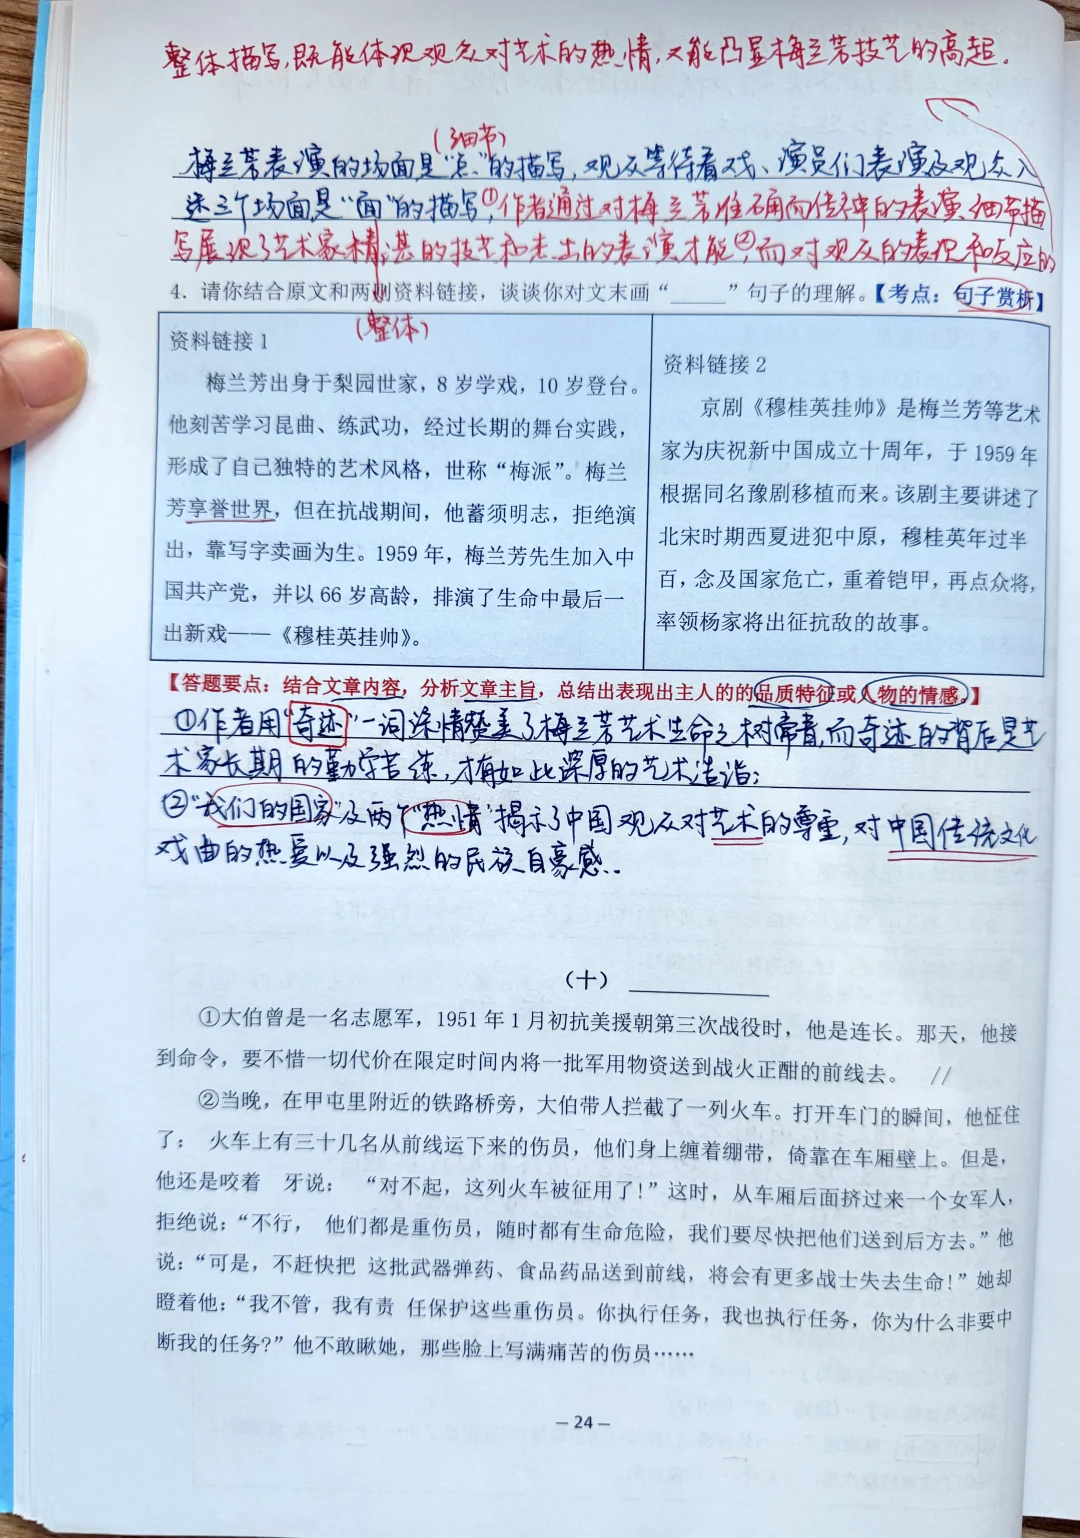 整体描写,既能体现观众对艺术的热情,又能凸显梅兰芳技艺的高超.
(细节)
梅兰芳表演的场面是“点”的描写,观众等待看戏、演员们表演及观众入
迷三个场面是“面”的描写,①作者通过对梅兰芳准确而传神的表演细节描
写展现了艺术家精湛的技艺和杰出的表演才能,②而对观众的表现和反应的
4. 请你结合原文和两则资料链接，谈谈你对文末画“_____”句子的理解。【考点：句子赏析】
(整体)
资料链接 1
梅兰芳出身于梨园世家，8 岁学戏，10 岁登台。
他刻苦学习昆曲、练武功，经过长期的舞台实践，
形成了自己独特的艺术风格，世称“梅派”。梅兰
芳享誉世界，但在抗战期间，他蓄须明志，拒绝演
出，靠写字卖画为生。1959 年，梅兰芳先生加入中
国共产党，并以 66 岁高龄，排演了生命中最后一
出新戏——《穆桂英挂帅》。
资料链接 2
京剧《穆桂英挂帅》是梅兰芳等艺术
家为庆祝新中国成立十周年，于 1959 年
根据同名豫剧移植而来。该剧主要讲述了
北宋时期西夏进犯中原，穆桂英年过半
百，念及国家危亡，重着铠甲，再点众将，
率领杨家将出征抗敌的故事。
【答题要点：结合文章内容，分析文章主旨，总结出表现出主人的的品质特征或人物的情感。】
①作者用“奇迹”一词深情赞美了梅兰芳艺术生命之树常青,而奇迹的背后是艺
术家长期的勤学苦练,才有如此深厚的艺术造诣;
②“我们的国家”及两个“热情”揭示了中国观众对艺术的尊重,对中国传统文化
戏曲的热爱以及强烈的民族自豪感..
（十） __________
①大伯曾是一名志愿军，1951 年 1 月初抗美援朝第三次战役时，他是连长。那天，他接
到命令，要不惜一切代价在限定时间内将一批军用物资送到战火正酣的前线去。 //
②当晚，在甲屯里附近的铁路桥旁，大伯带人拦截了一列火车。打开车门的瞬间，他怔住
了： 火车上有三十几名从前线运下来的伤员，他们身上缠着绷带，倚靠在车厢壁上。但是，
他还是咬着 牙说： “对不起，这列火车被征用了!”这时，从车厢后面挤过来一个女军人，
拒绝说：“不行， 他们都是重伤员，随时都有生命危险，我们要尽快把他们送到后方去。”他
说：“可是，不赶快把 这批武器弹药、食品药品送到前线，将会有更多战士失去生命!”她却
瞪着他：“我不管，我有责 任保护这些重伤员。你执行任务，我也执行任务，你为什么非要中
断我的任务?”他不敢瞅她，那些脸上写满痛苦的伤员……
— 24 —